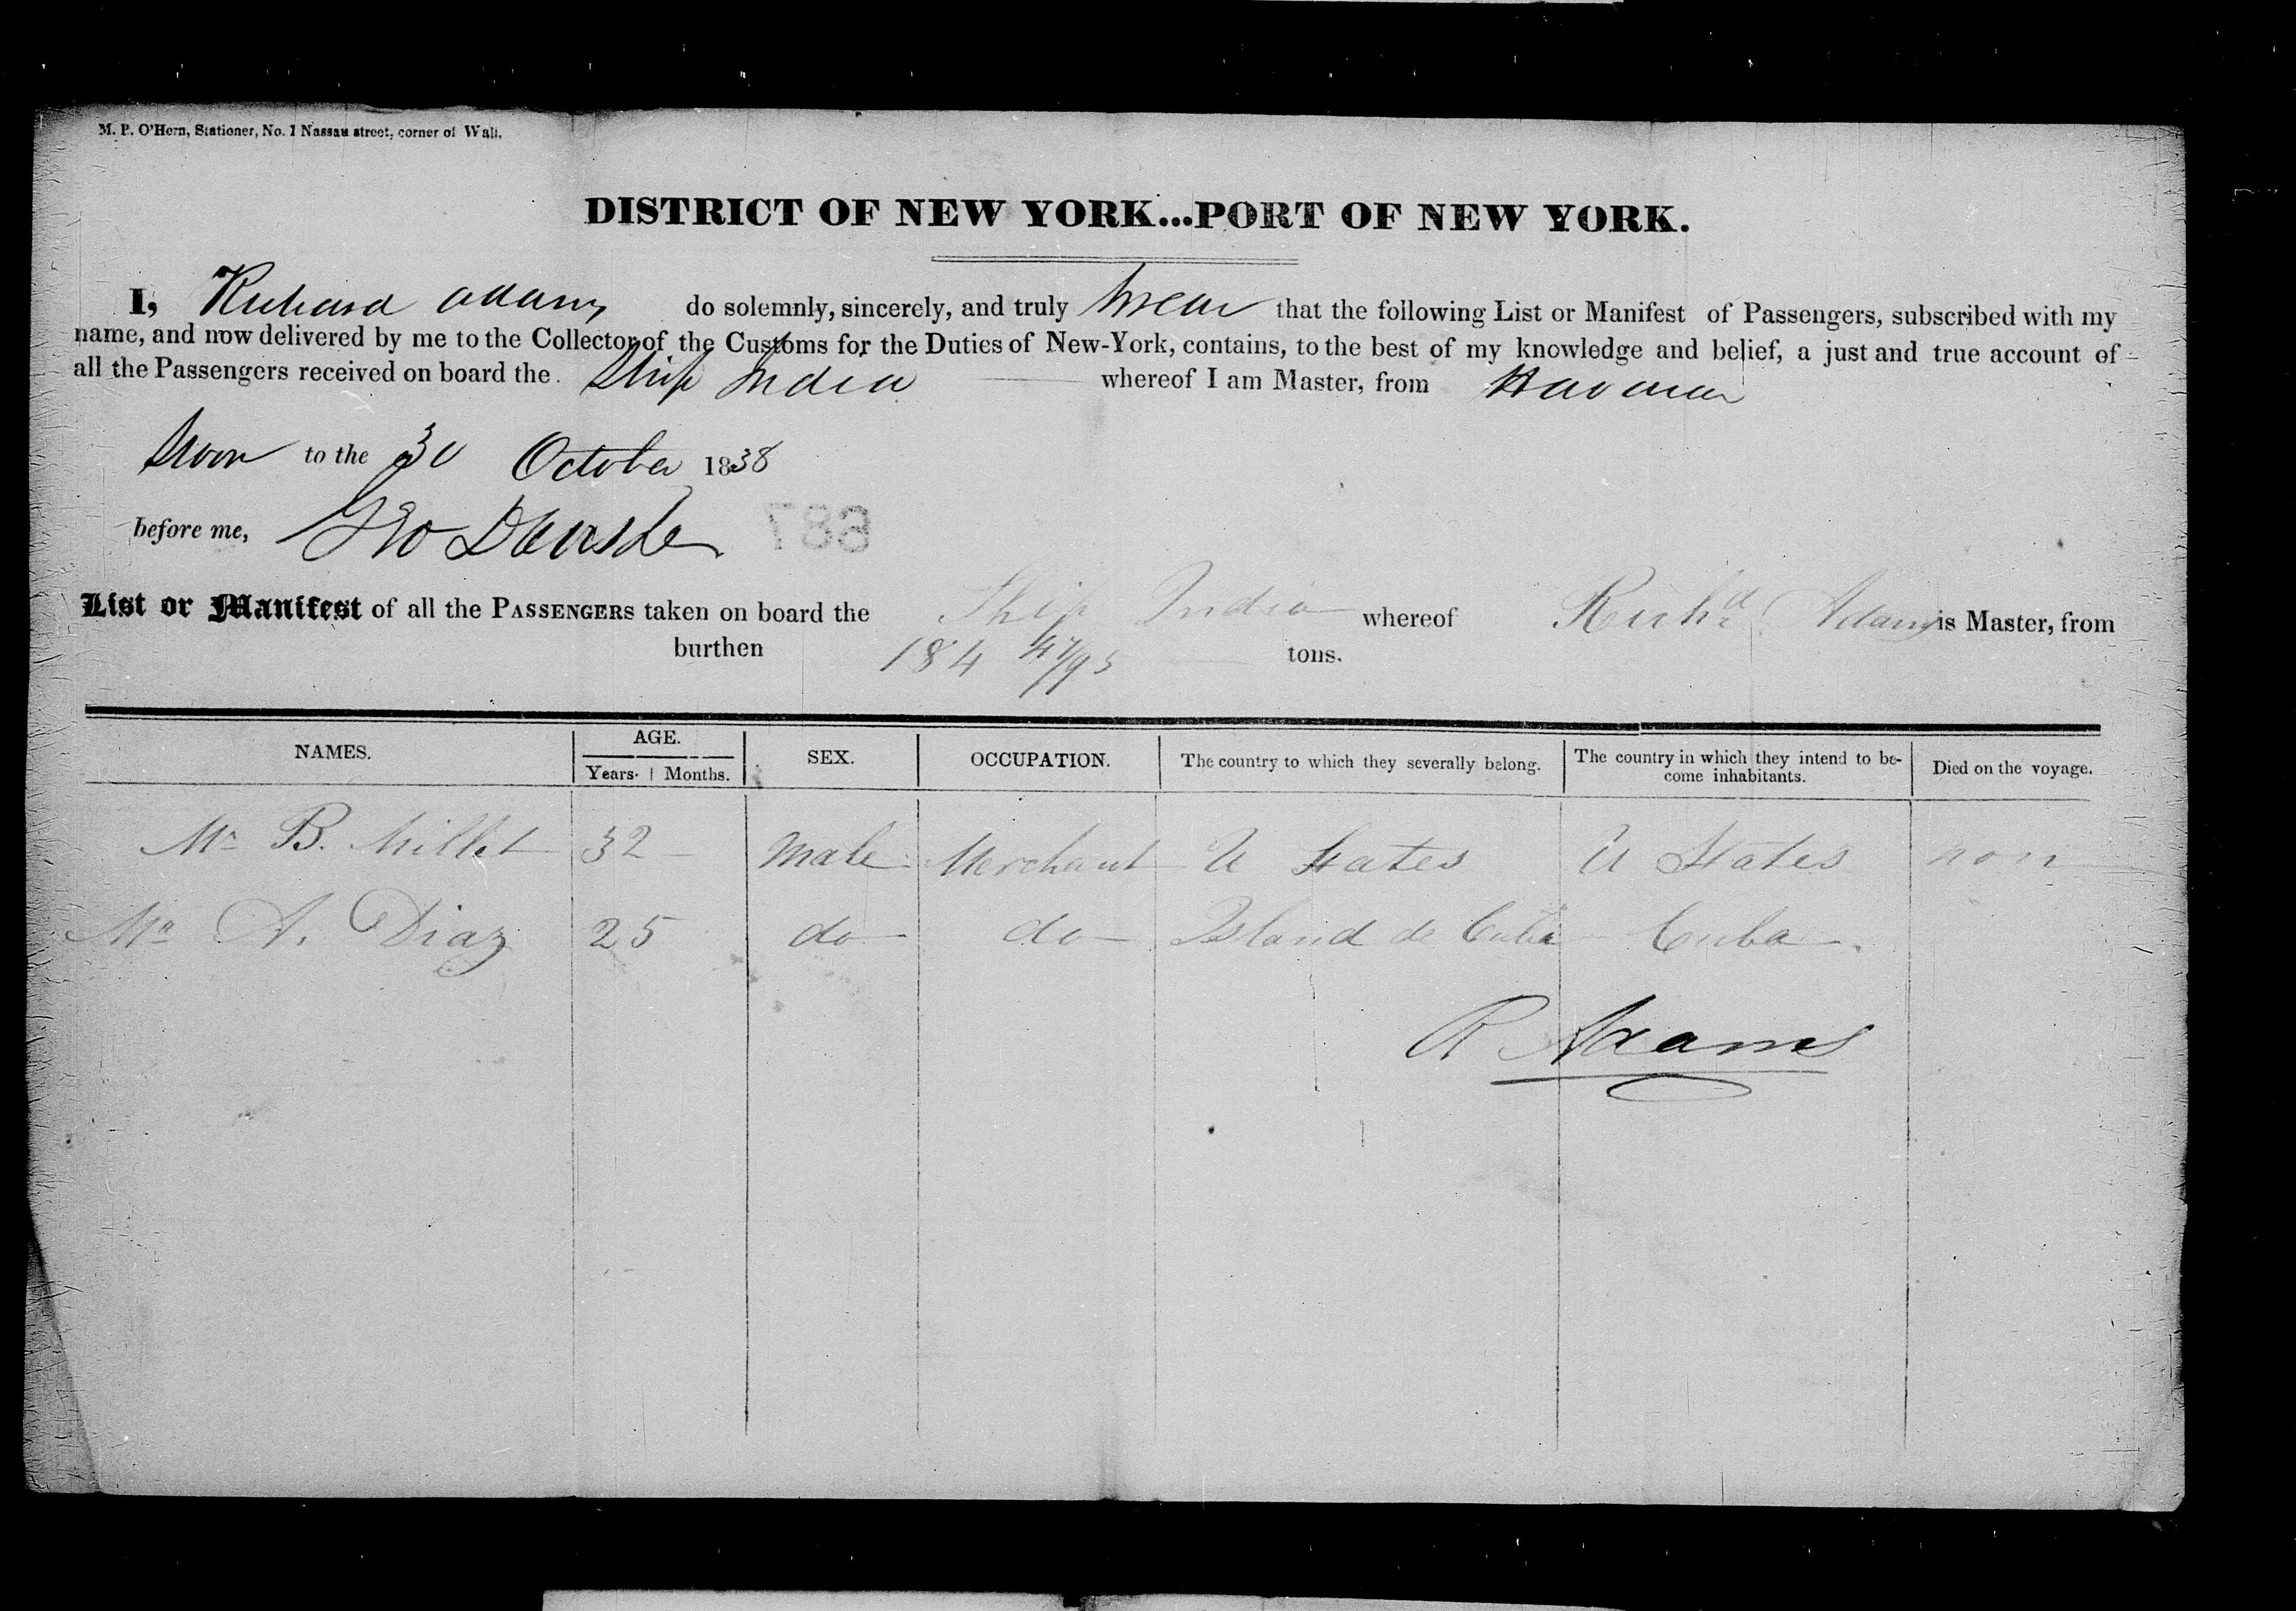 M. P. O'Hern, Stationer, No. 1 Nassau street, corner of Wall.
DISTRICT OF NEW YORK...PORT OF NEW YORK.
I, Richard Adams do solemnly, sincerely, and truly swear that the following List or Manifest of Passengers, subscribed with my
name, and now delivered by me to the Collector of the Customs for the Duties of New-York, contains, to the best of my knowledge and belief, a just and true account of
all the Passengers received on board the Ship India whereof I am Master, from Havana
Sworn to the 30 October 1838
before me, Geo
687
List or Manifest of all the PASSENGERS taken on board the Ship India whereof Richd Adams is Master, from
burthen 184 47/95 tons.
NAMES. AGE. SEX. OCCUPATION. The country to which they severally belong. The country in which they intend to be-
come inhabitants. Died on the voyage.
Years. Months.
Mr B. Millet 32 Male Merchant U States U States non
Mr A. Diaz 25 do do Island de Cuba Cuba
R Adams